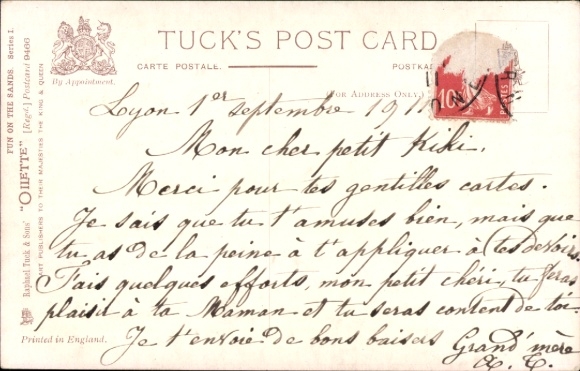 TUCK'S POST CARD
CARTE POSTALE.
POSTKA
By Appointment.
(FOR ADDRESS ONLY.)
FUN ON THE SANDS Series I.
Raphael Tuck & Sons' "OILETTE" [Regd.] Postcard 9466
ART PUBLISHERS TO THEIR MAJESTIES THE KING & QUEEN
Printed in England.
10
Lyon 1er septembre 1911
Mon cher petit Kiki.
Merci pour tes gentilles cartes.
Je sais que tu t'amuses bien, mais que
tu as de la peine à t'appliquer à tes devoirs.
Fais quelques efforts, mon petit chéri, tu feras
plaisir à ta Maman et tu seras content de toi.
Je t'envoie de bons baisers Grand'mère